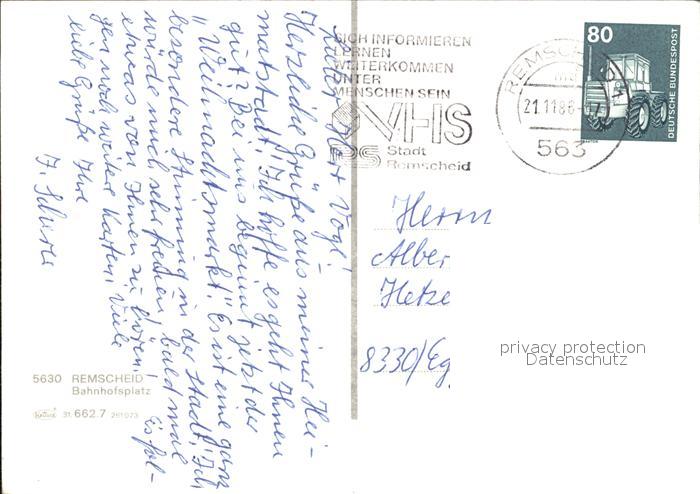 Lieber Herr Vogl!
Herzliche Grüße aus meiner Hei-
matstadt! Ich hoffe es geht Ihnen
gut? Bei uns beginnt jetzt der
"Weihnachtsmarkt". Es ist eine ganz
besondere Stimmung in der Stadt! Ich
würde mich sehr freuen, bald mal
etwas von Ihnen zu hören! Es fol-
gen noch weitere Karten! Viele
liebe Grüße Ihre
SICH INFORMIEREN
LERNEN
WEITERKOMMEN
UNTER
MENSCHEN SEIN
VHS
Stadt
Remscheid
REMSCHEID
21.11.88
563
80
DEUTSCHE BUNDESPOST
Herrn
Alber
Hetze
8330/Eg.
privacy protection
Datenschutz
5630 REMSCHEID
Bahnhofsplatz
31 662.7